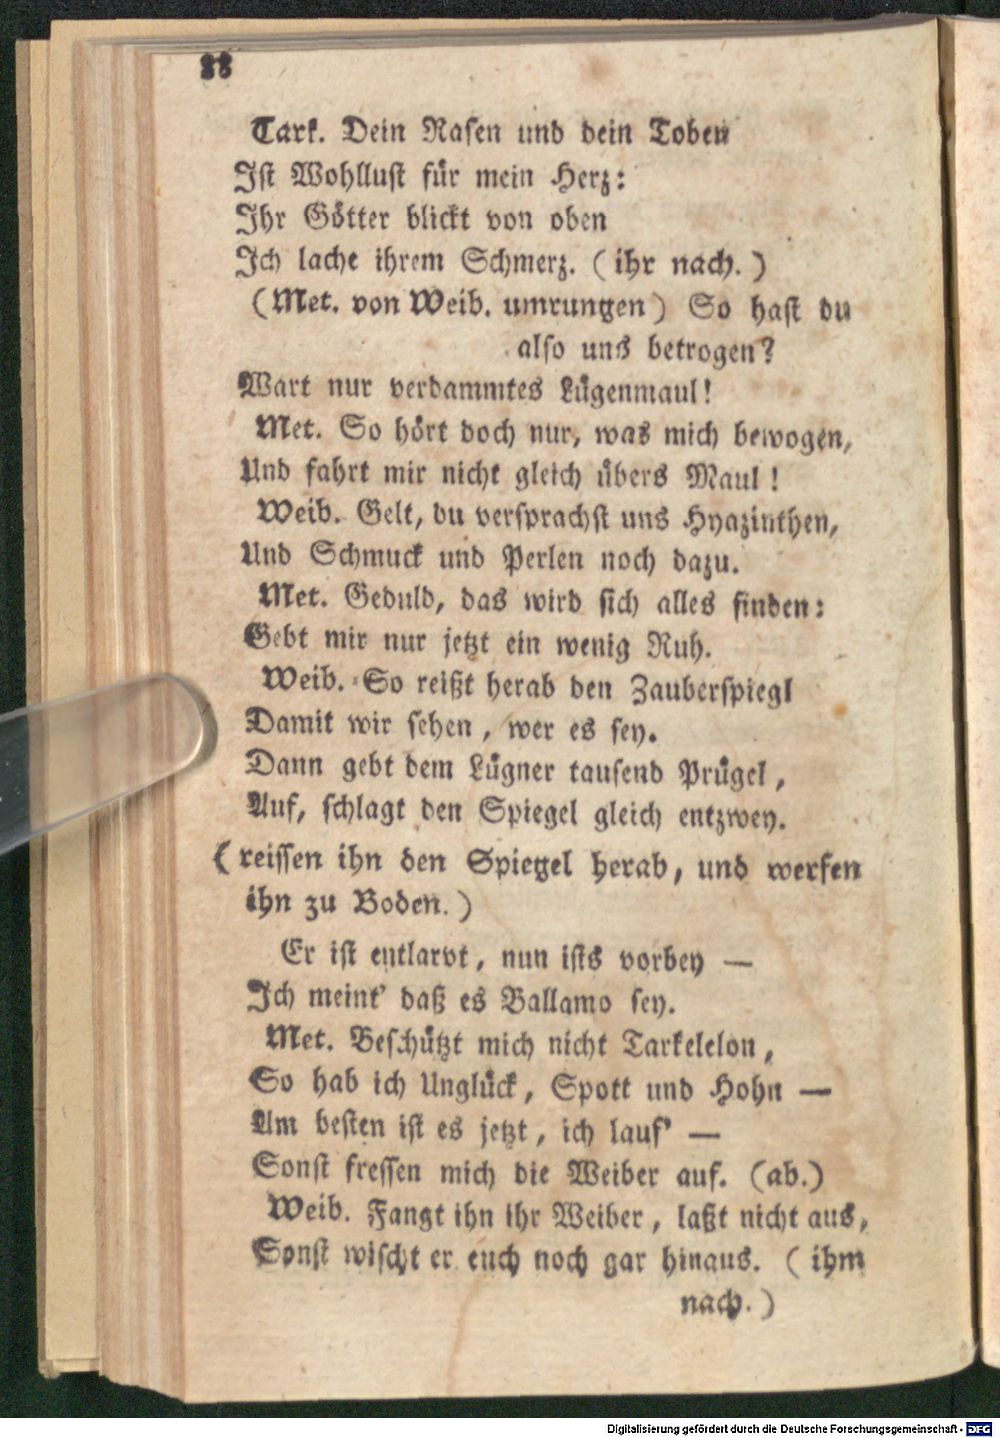 88
Tark. Dein Rasen und dein Toben
Ist Wohllust für mein Herz:
Ihr Götter blickt von oben
Ich lache ihrem Schmerz. (ihr nach.)
(Met. von Weib. umrungen) So hast du
also uns betrogen?
Wart nur verdammtes Lügenmaul!
Met. So hört doch nur, was mich bewogen,
Und fahrt mir nicht gleich übers Maul!
Weib. Gelt, du versprachst uns Hyazinthen,
Und Schmuck und Perlen noch dazu.
Met. Geduld, das wird sich alles finden:
Gebt mir nur jetzt ein wenig Ruh.
Weib. So reißt herab den Zauberspiegl
Damit wir sehen, wer es sey.
Dann gebt dem Lügner tausend Prügel,
Auf, schlagt den Spiegel gleich entzwey.
(reissen ihn den Spiegel herab, und werfen
ihn zu Boden.)
Er ist entlarvt, nun ists vorbey —
Ich meint' daß es Ballamo sey.
Met. Beschützt mich nicht Tarkelelon,
So hab ich Unglück, Spott und Hohn —
Am besten ist es jetzt, ich lauf' —
Sonst fressen mich die Weiber auf. (ab.)
Weib. Fangt ihn ihr Weiber, laßt nicht aus,
Sonst wischt er euch noch gar hinaus. (ihm
nach.)
Digitalisierung gefördert durch die Deutsche Forschungsgemeinschaft - DFG